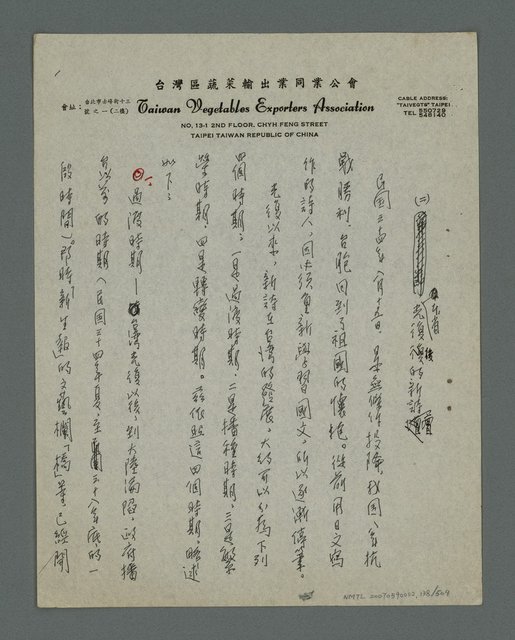 台灣區蔬菜輸出業同業公會
會址：台北市赤峰街十三號之一（二樓）
Taiwan Vegetables Exporters Association
CABLE ADDRESS:
"TAIVEGTS" TAIPEI
TEL 550728
548140
NO. 13-1 2ND FLOOR, CHYH FENG STREET
TAIPEI TAIWAN REPUBLIC OF CHINA
(二) 光復後的新詩
民國三十四年八月十五日，日本無條件投降，我國八年抗
戰勝利，台胞回到了祖國的懷抱。從前用日文寫
作的詩人，因必須重新學習國文，所以逐漸停筆。
光復以來，新詩在台灣的發展，大約可以分為下列
四個時期，一是過渡時期，二是播種時期，三是繁
榮時期，四是轉變時期。茲依照這四個時期，略述
如下：
一、過渡時期——台灣光復以後，到大陸淪陷，政府播
台以前的時期（民國三十四年夏，至三十八年底的一
段時間）。那時「新生報」的文藝欄「橋」業已經開
NMTL 20070590002, 138/509